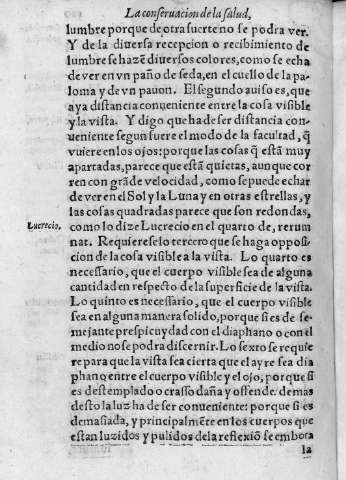 La conseruacion de la salud,
lumbre porque de otra suerte no se podra ver.
Y de la diuersa recepcion o recibimiento de
lumbre se hazẽ diuersos colores, como se echa
de ver en vn paño de seda, en el cuello de la pa-
loma y de vn pauon. El segundo auiso es, que
aya distancia conueniente entre la cosa visible
y la vista. Y digo que ha de ser distancia con-
ueniente segun fuere el modo de la facultad, q̃
vuiere en los ojos: porque las cosas q̃ estã muy
apartadas, parece que estã quietas, aunque cor
ren con grãde velocidad, como se puede echar
de ver en el Sol y la Luna y en otras estrellas, y
las cosas quadradas parece que son redondas,
Lucrecio.
como lo dize Lucrecio en el quarto de, rerum
nat. Requiere se lo tercero que se haga opposi-
cion de la cosa visible a la vista. Lo quarto es
necessario, que el cuerpo visible sea de alguna
cantidad en respecto de la superficie de la vista.
Lo quinto es necessario, que el cuerpo visible
sea en alguna manera solido, porque si es de se-
mejante prespicuydad con el diaphano o con el
medio no se podra discernir. Lo sexto se requie
re para que la vista sea cierta que el ayre sea dia
phano, entre el cuerpo visible y el ojo, porque si
es destemplado o crasso daña y offende. demas
desto la luz ha de ser conueniente: porque si es
demasiada, y principalmẽte en los cuerpos que
estan luzidos y pulidos de la reflexiõ se embota
la